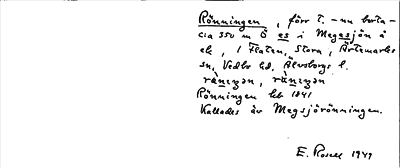 Rönningen, förr t. - nu borta -
c:a 350 m Ö es i Megesjön å
ek, 1 Flaten, Stora, Ärtemarks
sn, Vedbo hd, Älvsborgs l.
Rönningen hk 1841
Kallades äv Megsjörönningen.
E. Rosell 1949